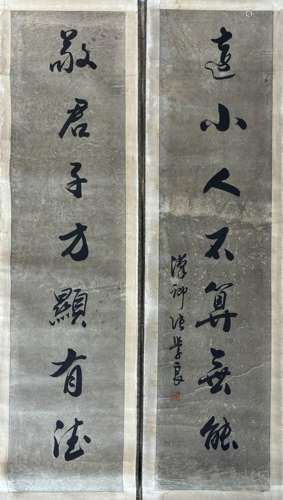 遠小人不算無能
漢卿張學良
敬君子方顯有德